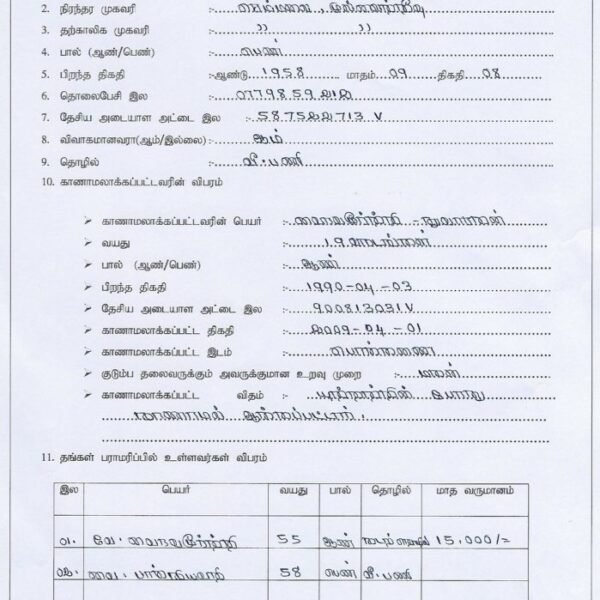 2. நிரந்தர முகவரி :- செம்மலை, முல்லைத்தீவு
3. தற்காலிக முகவரி :- ,, ,,
4. பால் (ஆண்/பெண்) :- பெண்
5. பிறந்த திகதி :-ஆண்டு 1958 மாதம் 09 திகதி 08
6. தொலைபேசி இல :- 0779859212
7. தேசிய அடையாள அட்டை இல :- 587522713 V
8. விவாகமானவரா(ஆம்/இல்லை) :- ஆம்
9. தொழில் :- வீ.பணி
10. காணாமலாக்கப்பட்டவரின் விபரம்
➢ காணாமலாக்கப்பட்டவரின் பெயர் :- வைரமூர்த்தி -
➢ வயது :- 19
➢ பால் (ஆண்/பெண்) :- ஆண்
➢ பிறந்த திகதி :- 1990-04-03
➢ தேசிய அடையாள அட்டை இல :- 900813031V
➢ காணாமலாக்கப்பட்ட திகதி :- 2009-04-01
➢ காணாமலாக்கப்பட்ட இடம் :-
➢ குடும்ப தலைவருக்கும் அவருக்குமான உறவு முறை :- மகன்
➢ காணாமலாக்கப்பட்ட விதம் :- யுத்தத்தின் போது
காணாமல் ஆக்கப்பட்டார்.
11. தங்கள் பராமரிப்பில் உள்ளவர்கள் விபரம்
இல பெயர் வயது பால் தொழில் மாத வருமானம்
01. வே. வைரமூர்த்தி 55 ஆண் 15,000/=
02. வை. 58 பெண் வீ.பணி